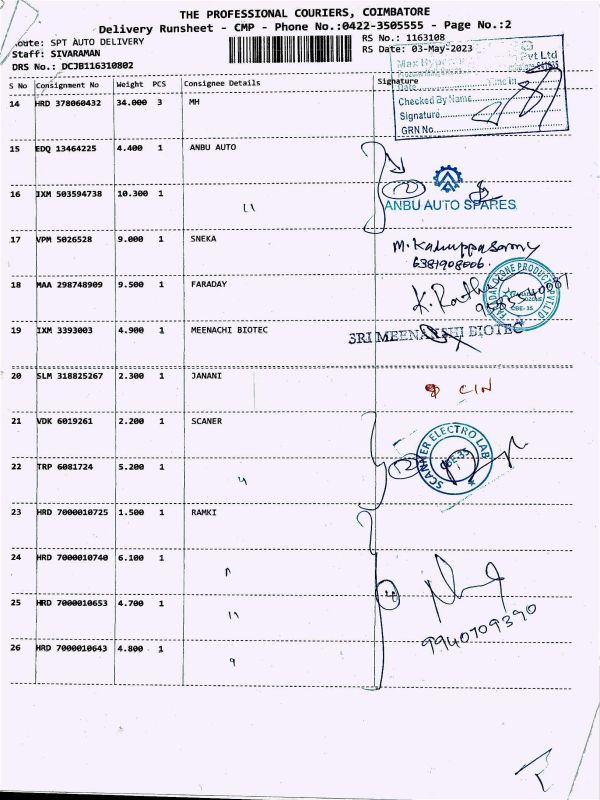 THE PROFESSIONAL COURIERS, COIMBATORE
Delivery Runsheet - CMP - Phone No.:0422-3505555 - Page No.:2
Route: SPT AUTO DELIVERY
Staff: SIVARAMAN
DRS No.: DCJB116310802
RS No.: 1163108
RS Date: 03-May-2023
Pvt Ltd
Date Time In
Checked By Name
Signature
GRN No.
S No Consignment No Weight PCS Consignee Details Signature
14 HRD 378060432 34.000 3 MH
15 EDQ 13464225 4.400 1 ANBU AUTO
16 IXM 503594738 10.300 1 "
ANBU AUTO SPARES
17 VPM 5026528 9.000 1 SNEKA
M. Karuppasamy
6381908006.
18 MAA 298748909 9.500 1 FARADAY
K. Rathi
CBE-35
19 IXM 3393003 4.900 1 MEENACHI BIOTEC
SRI MEENAKSHI BIOTEC
20 SLM 318825267 2.300 1 JANANI
CIN
21 VDK 6019261 2.200 1 SCANER
SCANNER ELECTRO LAB
CBE-35
22 TRP 6081724 5.200 1 "
23 HRD 7000010725 1.500 1 RAMKI
24 HRD 7000010740 6.100 1 "
25 HRD 7000010653 4.700 1 "
4
9940709390
26 HRD 7000010643 4.800 1 "